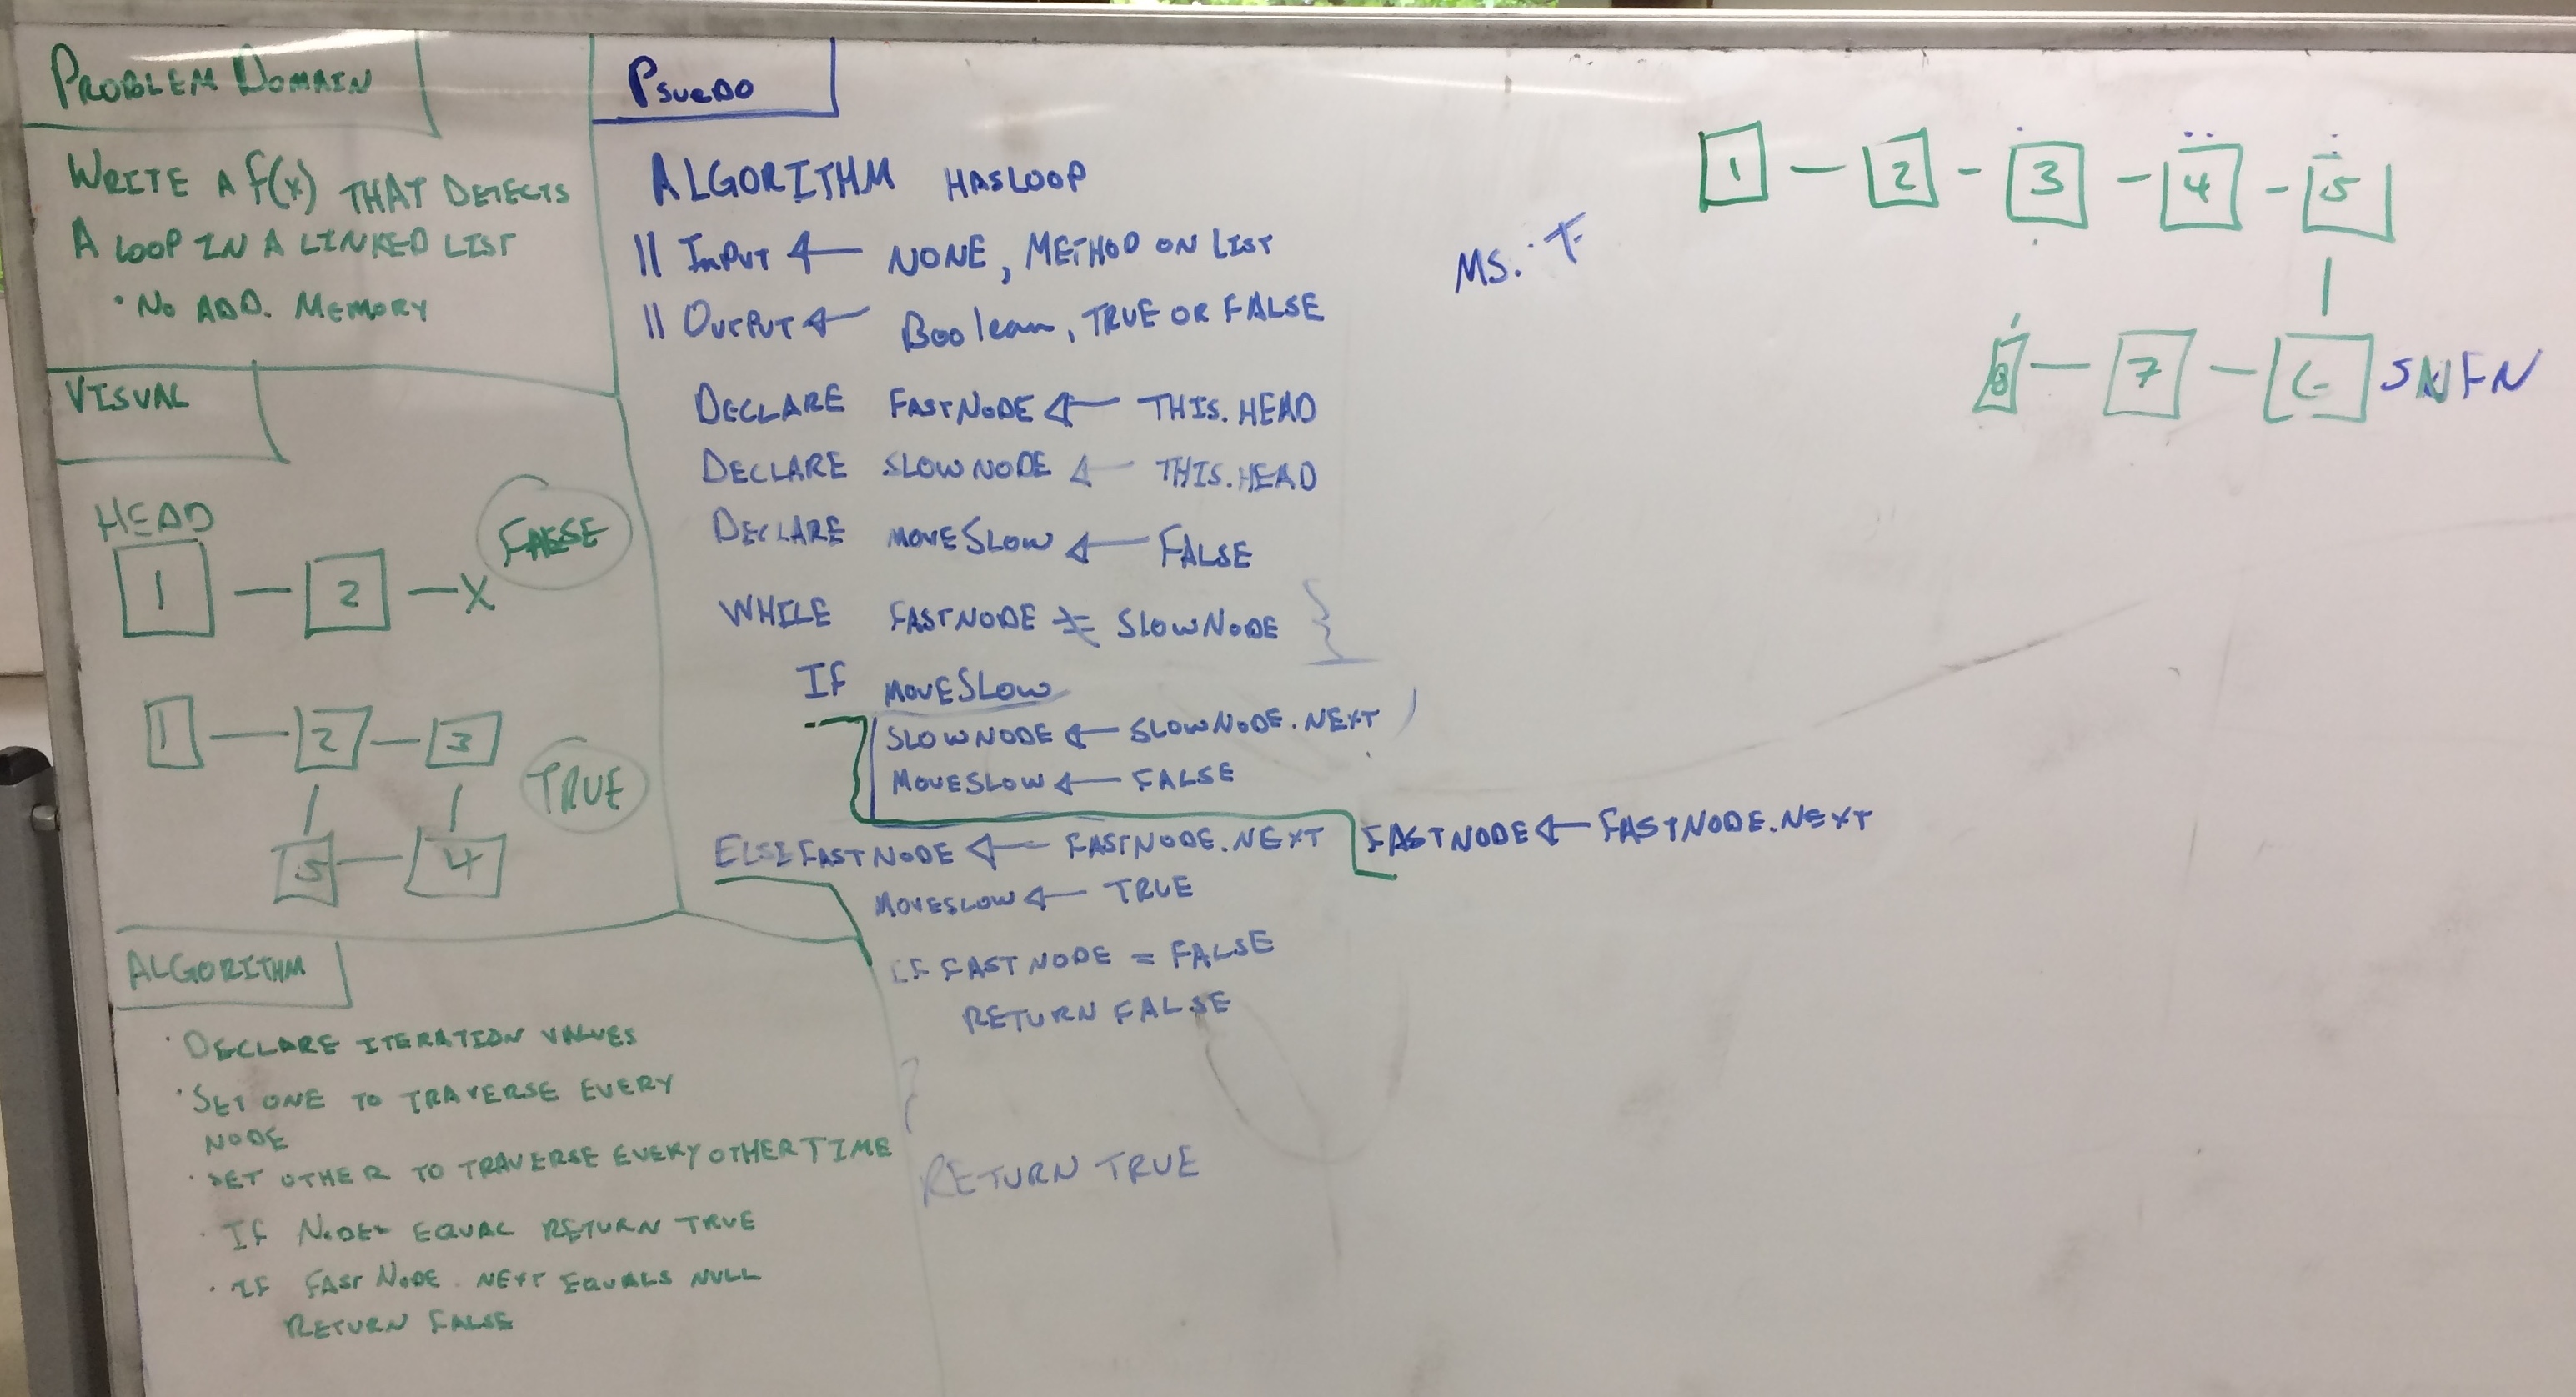 PROBLEM DOMAIN
WRITE A f(x) THAT DETECTS
A LOOP IN A LINKED LIST
• NO ADD. MEMORY
VISUAL
HEAD
FALSE
1 — 2 — X
1 — 2 — 3
TRUE
5 — 4
ALGORITHM
• DECLARE ITERATION VALUES
• SET ONE TO TRAVERSE EVERY
NODE
• SET OTHER TO TRAVERSE EVERY OTHER TIME
• IF NODES EQUAL RETURN TRUE
• IF FAST NODE. NEXT EQUALS NULL
RETURN FALSE
PSUEDO
ALGORITHM HASLOOP
|| INPUT ← NONE, METHOD ON LIST
|| OUTPUT ← Boolean, TRUE OR FALSE
DECLARE FASTNODE ← THIS.HEAD
DECLARE SLOWNODE ← THIS.HEAD
DECLARE MOVESLOW ← FALSE
WHILE FASTNODE ≠ SLOWNODE }
IF MOVESLOW
SLOWNODE ← SLOWNODE.NEXT
MOVESLOW ← FALSE
FASTNODE ← FASTNODE.NEXT
ELSE FASTNODE ← FASTNODE.NEXT
MOVESLOW ← TRUE
IF FASTNODE = FALSE
RETURN FALSE
}
RETURN TRUE
MS. F
1 — 2 - 3 - 4 - 5
8 — 7 — 6 SNFN